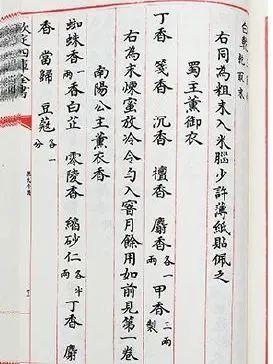 右同為粗末入米腦少許薄紙貼佩之
蜀王薰御衣
丁香 箋香 沉香 檀香 麝香各一兩 甲香三兩製
右為末煉蜜放冷令勻入窨月餘用如前見第一卷
南陽公主薰衣香
蜘蛛香一兩 香白芷 零陵香 縮砂仁各半兩 丁香 麝
香 當歸 豆蔻各一分
欽定四庫全書